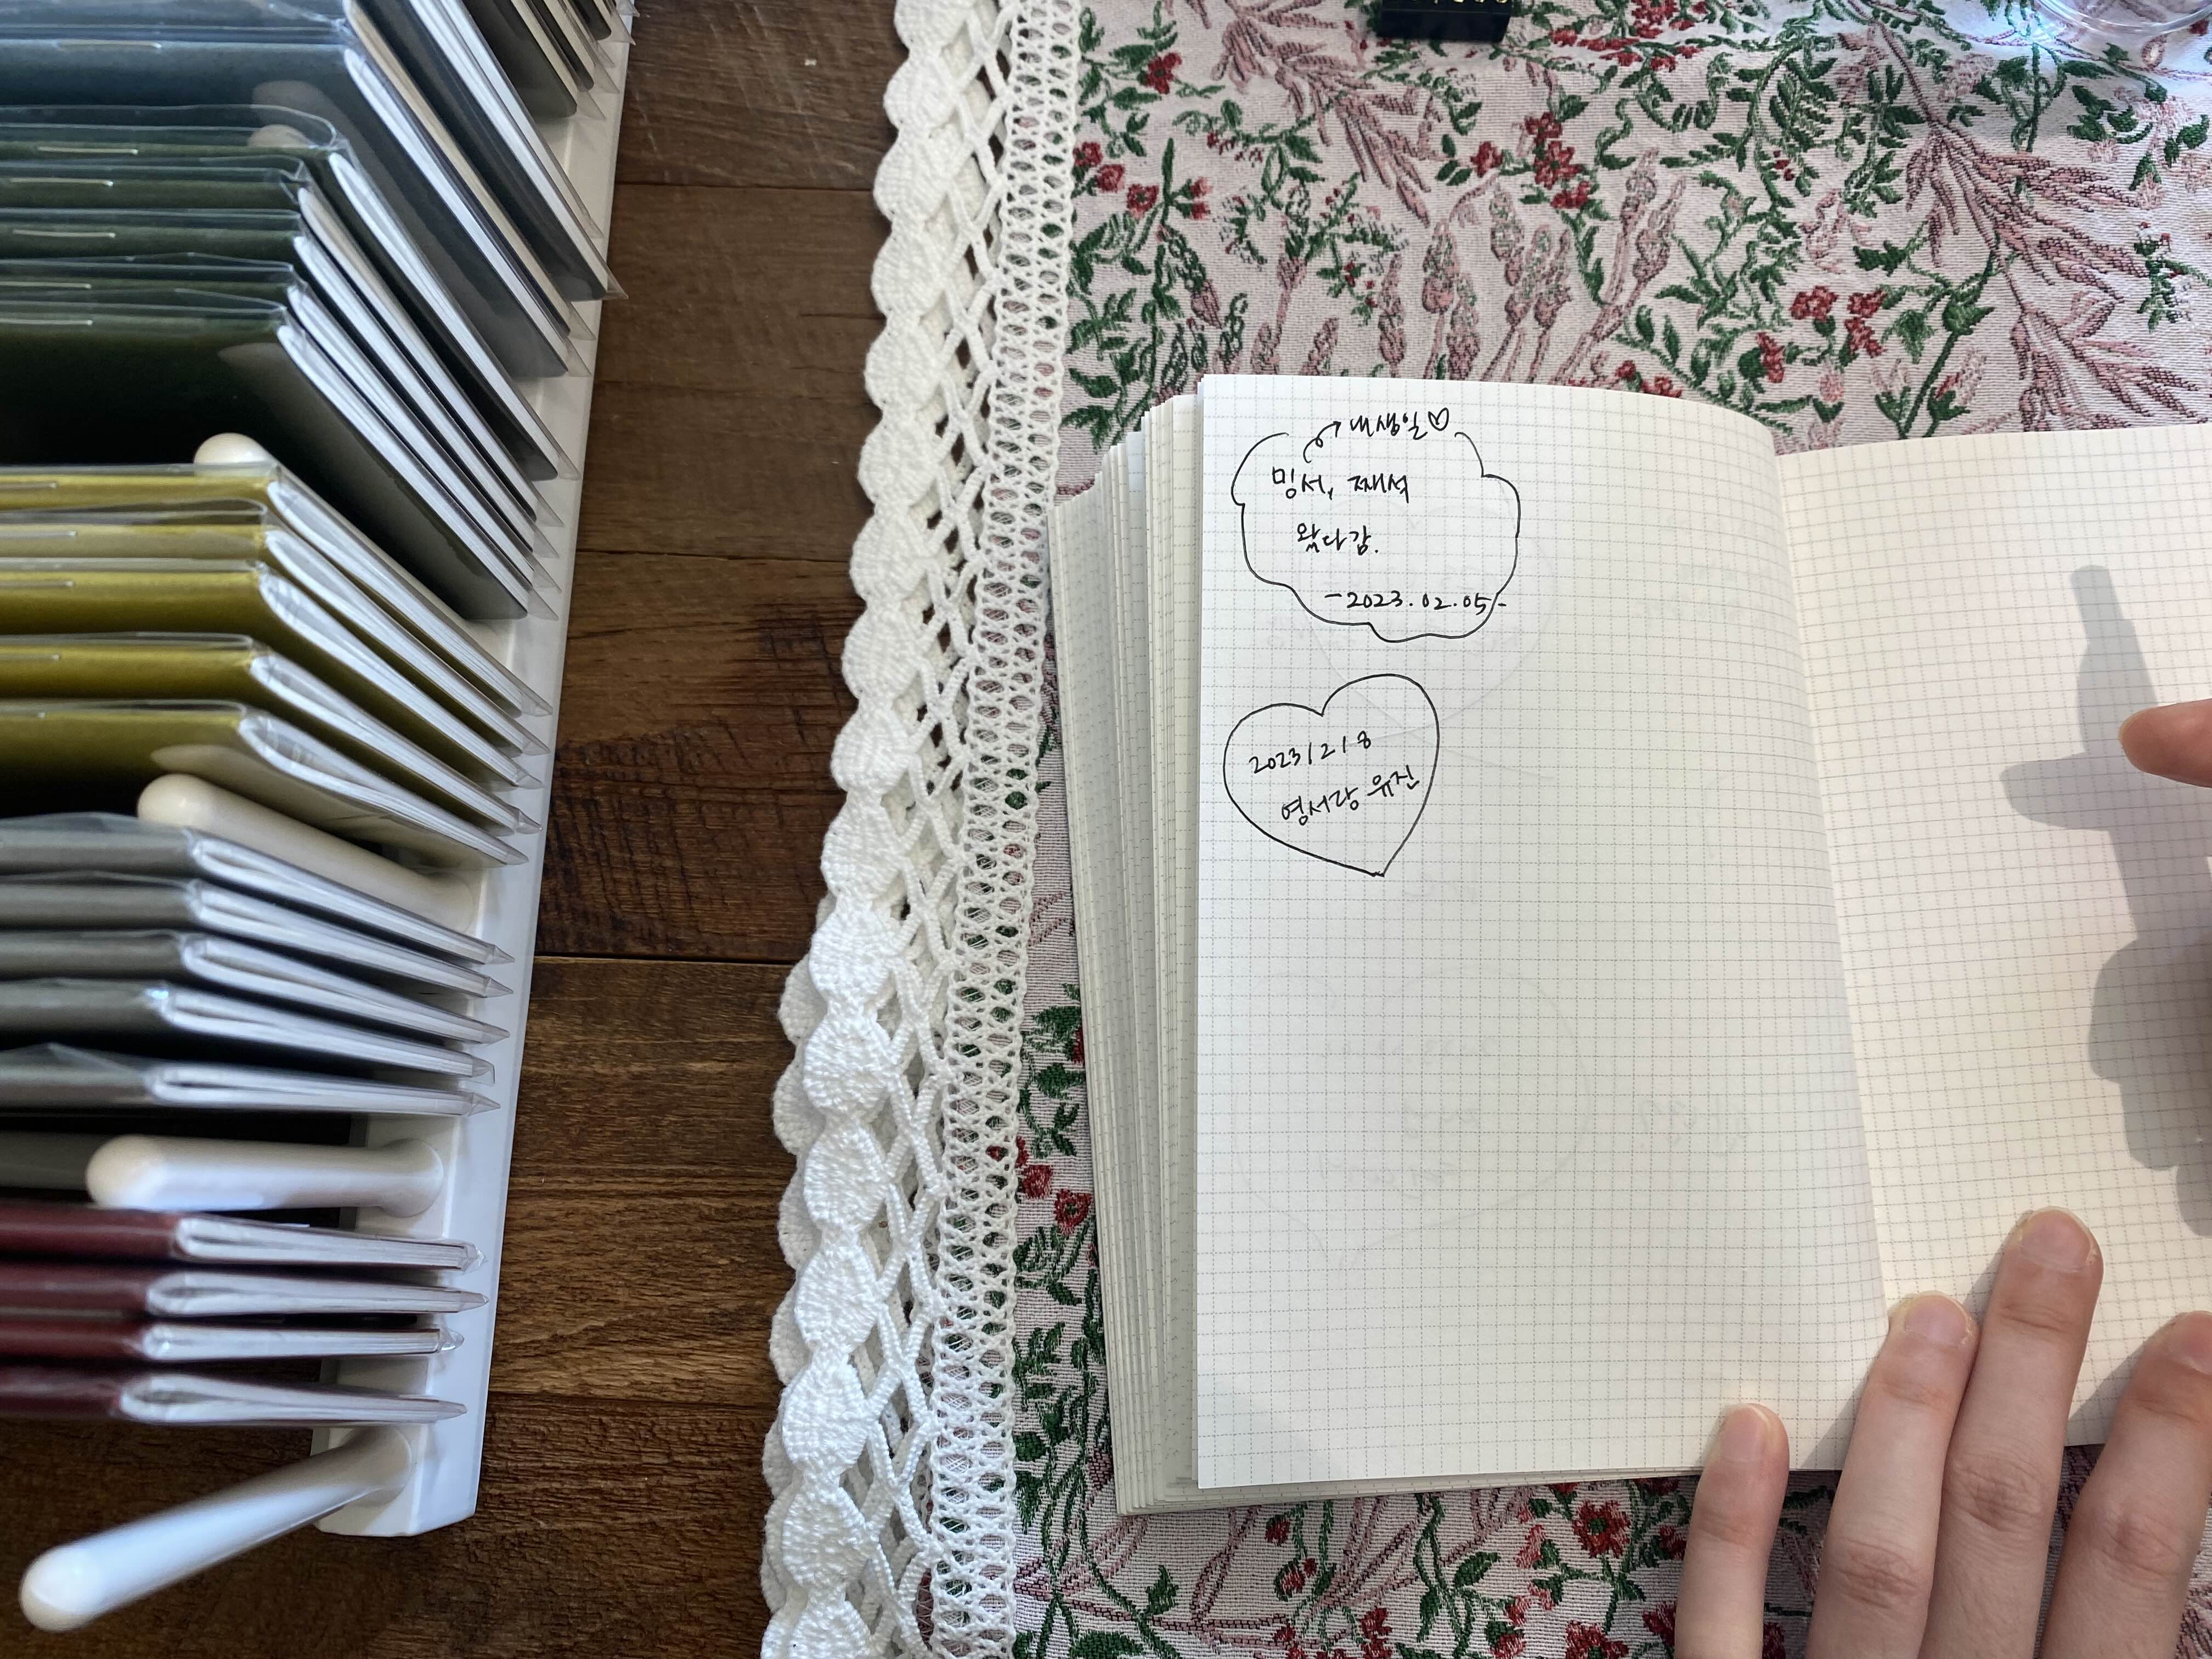 내생일♡
밍서, 재석
왔다감.
-2023.02.05-
2023/2/8
영서랑 유진